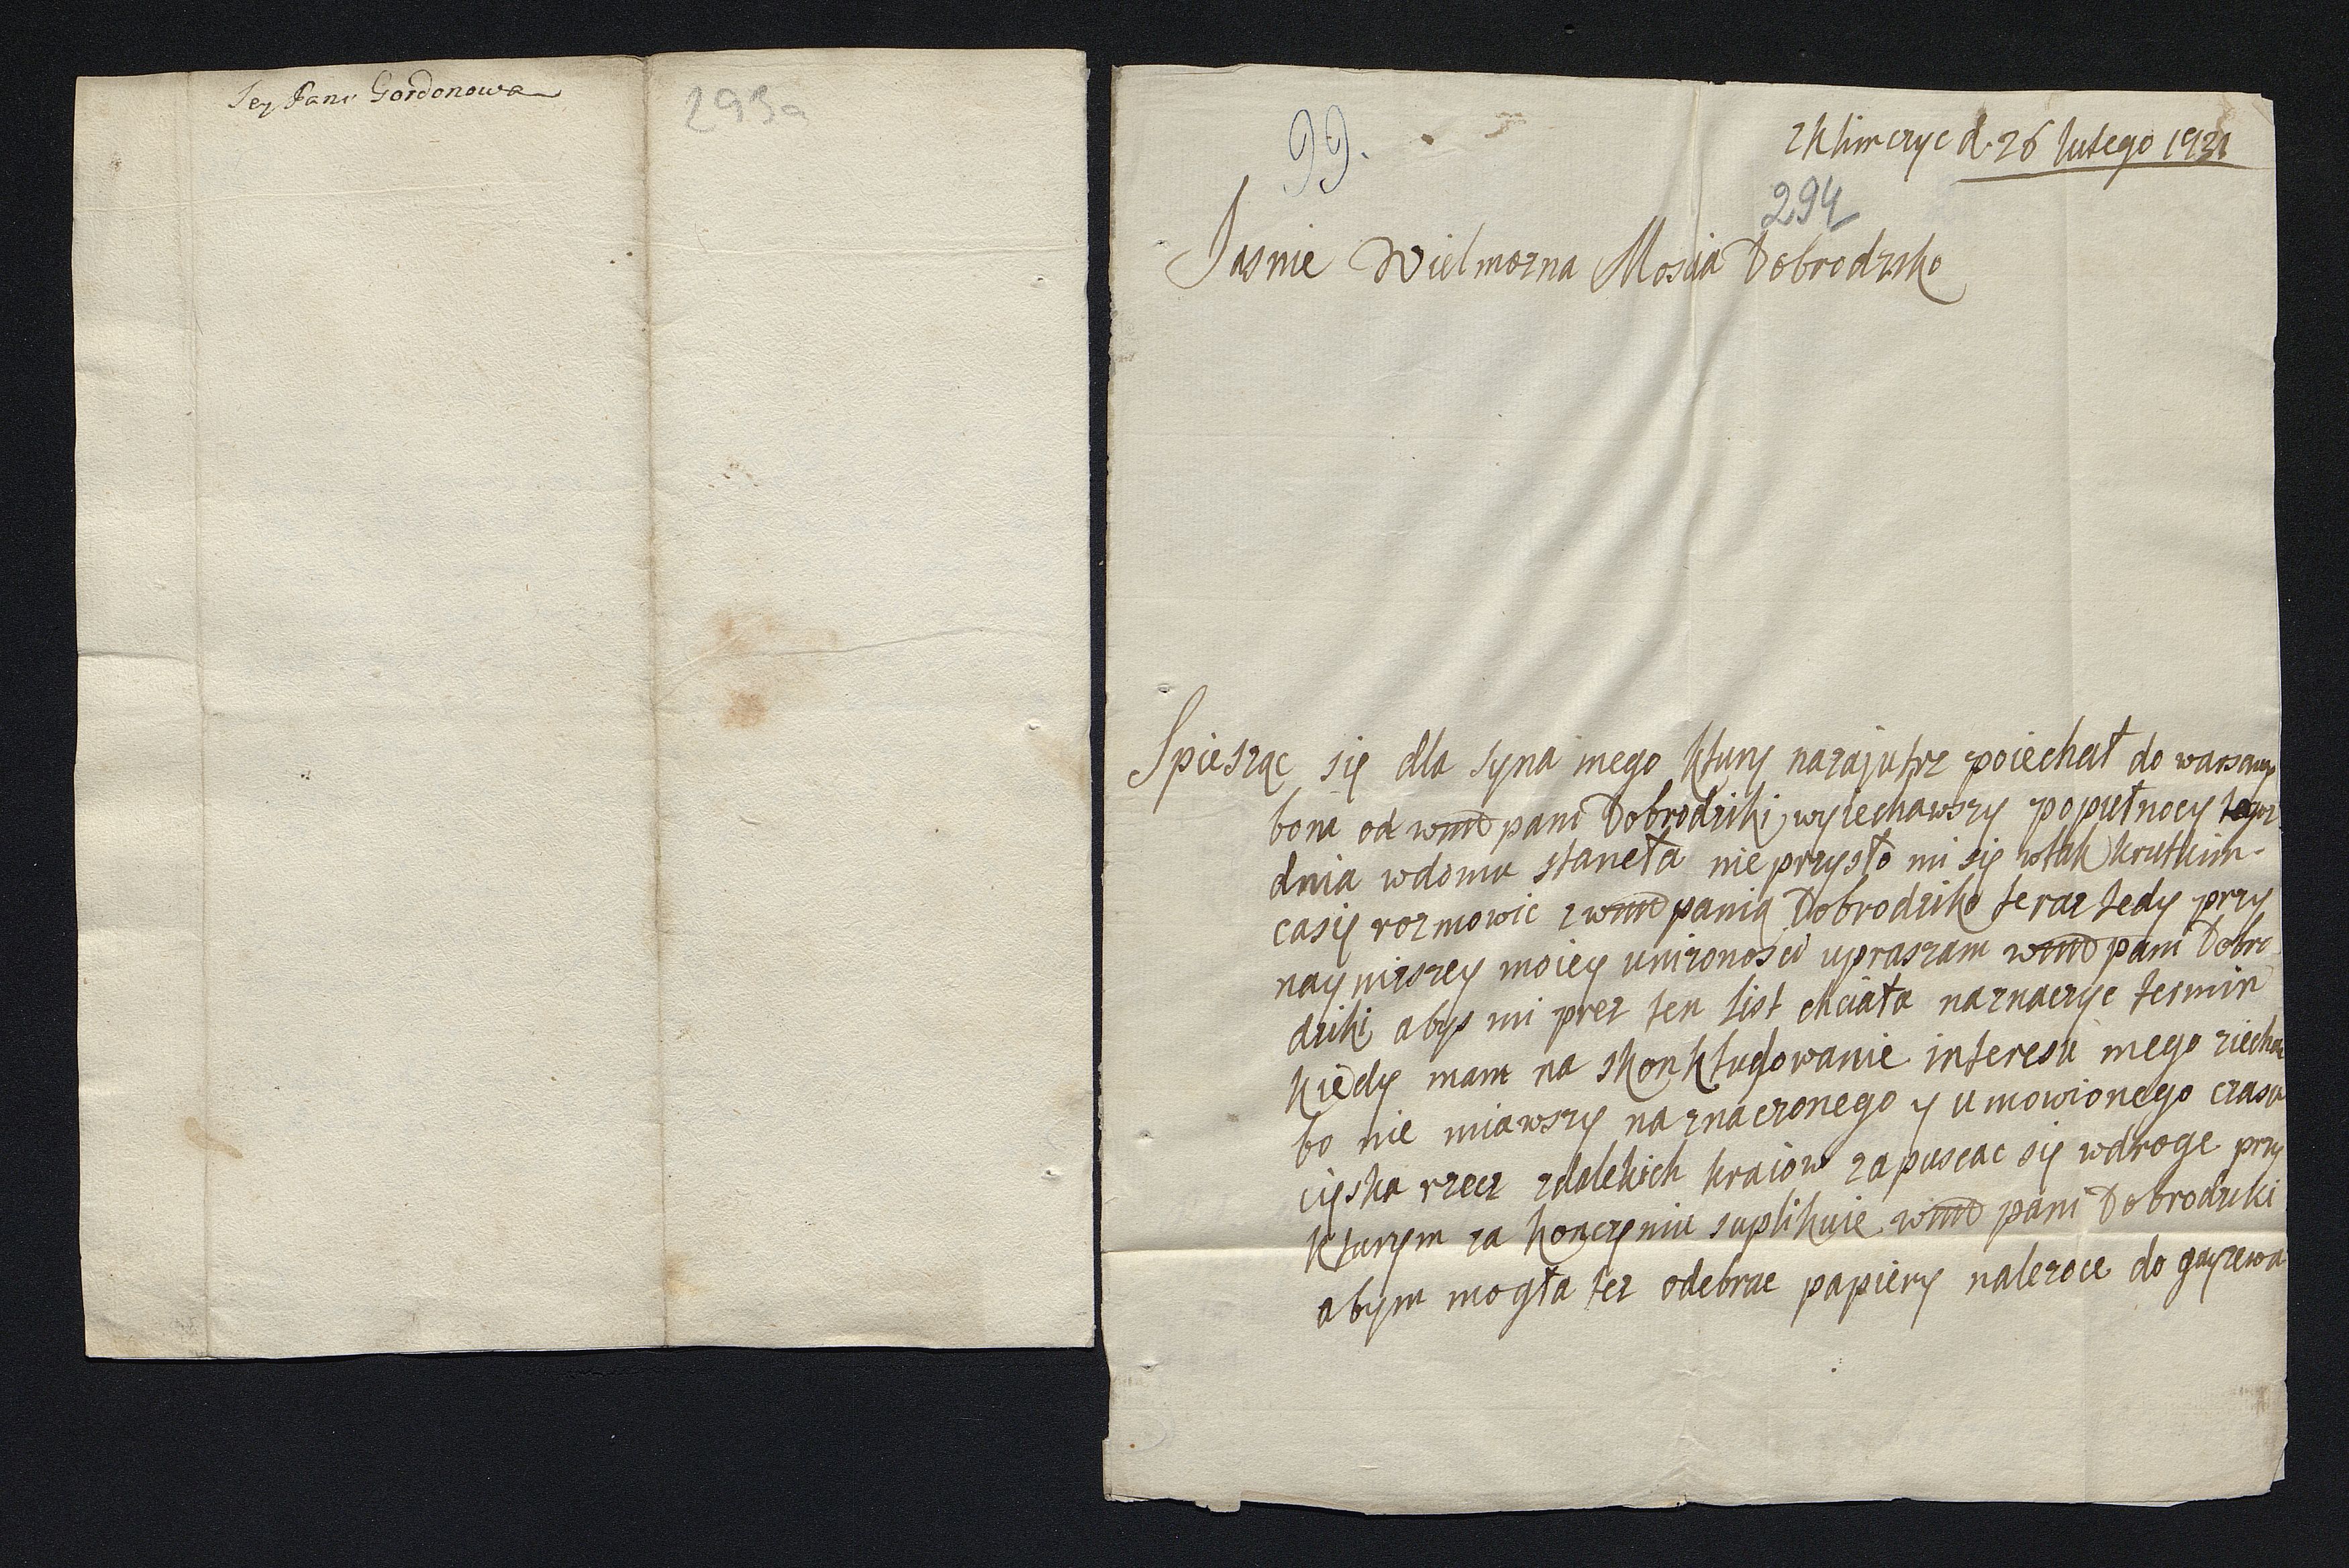 Jey Pani Gordonowa
293a
99.
zKlimczyc d. 26 lutego 1731
294
Jasnie Wielmozna Moscia Dobrodziko
Spiesząc się dla syna mego ktury nazajutrz poiechał do warsawy
bom od wmd pani Dobrodziki wyiechawszy popułnocy tegoz
dnia wdomu staneła nie przysło mi się wtak krutkim
casię rozmowic zwmd panią Dobrodziko teraz tedy przy
naynizszey moiey unizonosci upraszam wmd pani Dobro
dziki abys mi prez ten list chciała naznaczyc termin
kiedy mam na skonkludowanie interesu mego ziechac
bo nie miawszy naznaczonego y umowionego czasu
cięska rzecz zdalekich kraiow zapuscac się wdroge przy
kturym zakonczeniu suplikuie wmd pani Dobrodziki
abym mogła tez odebrac papiery nalezoce do gązewa